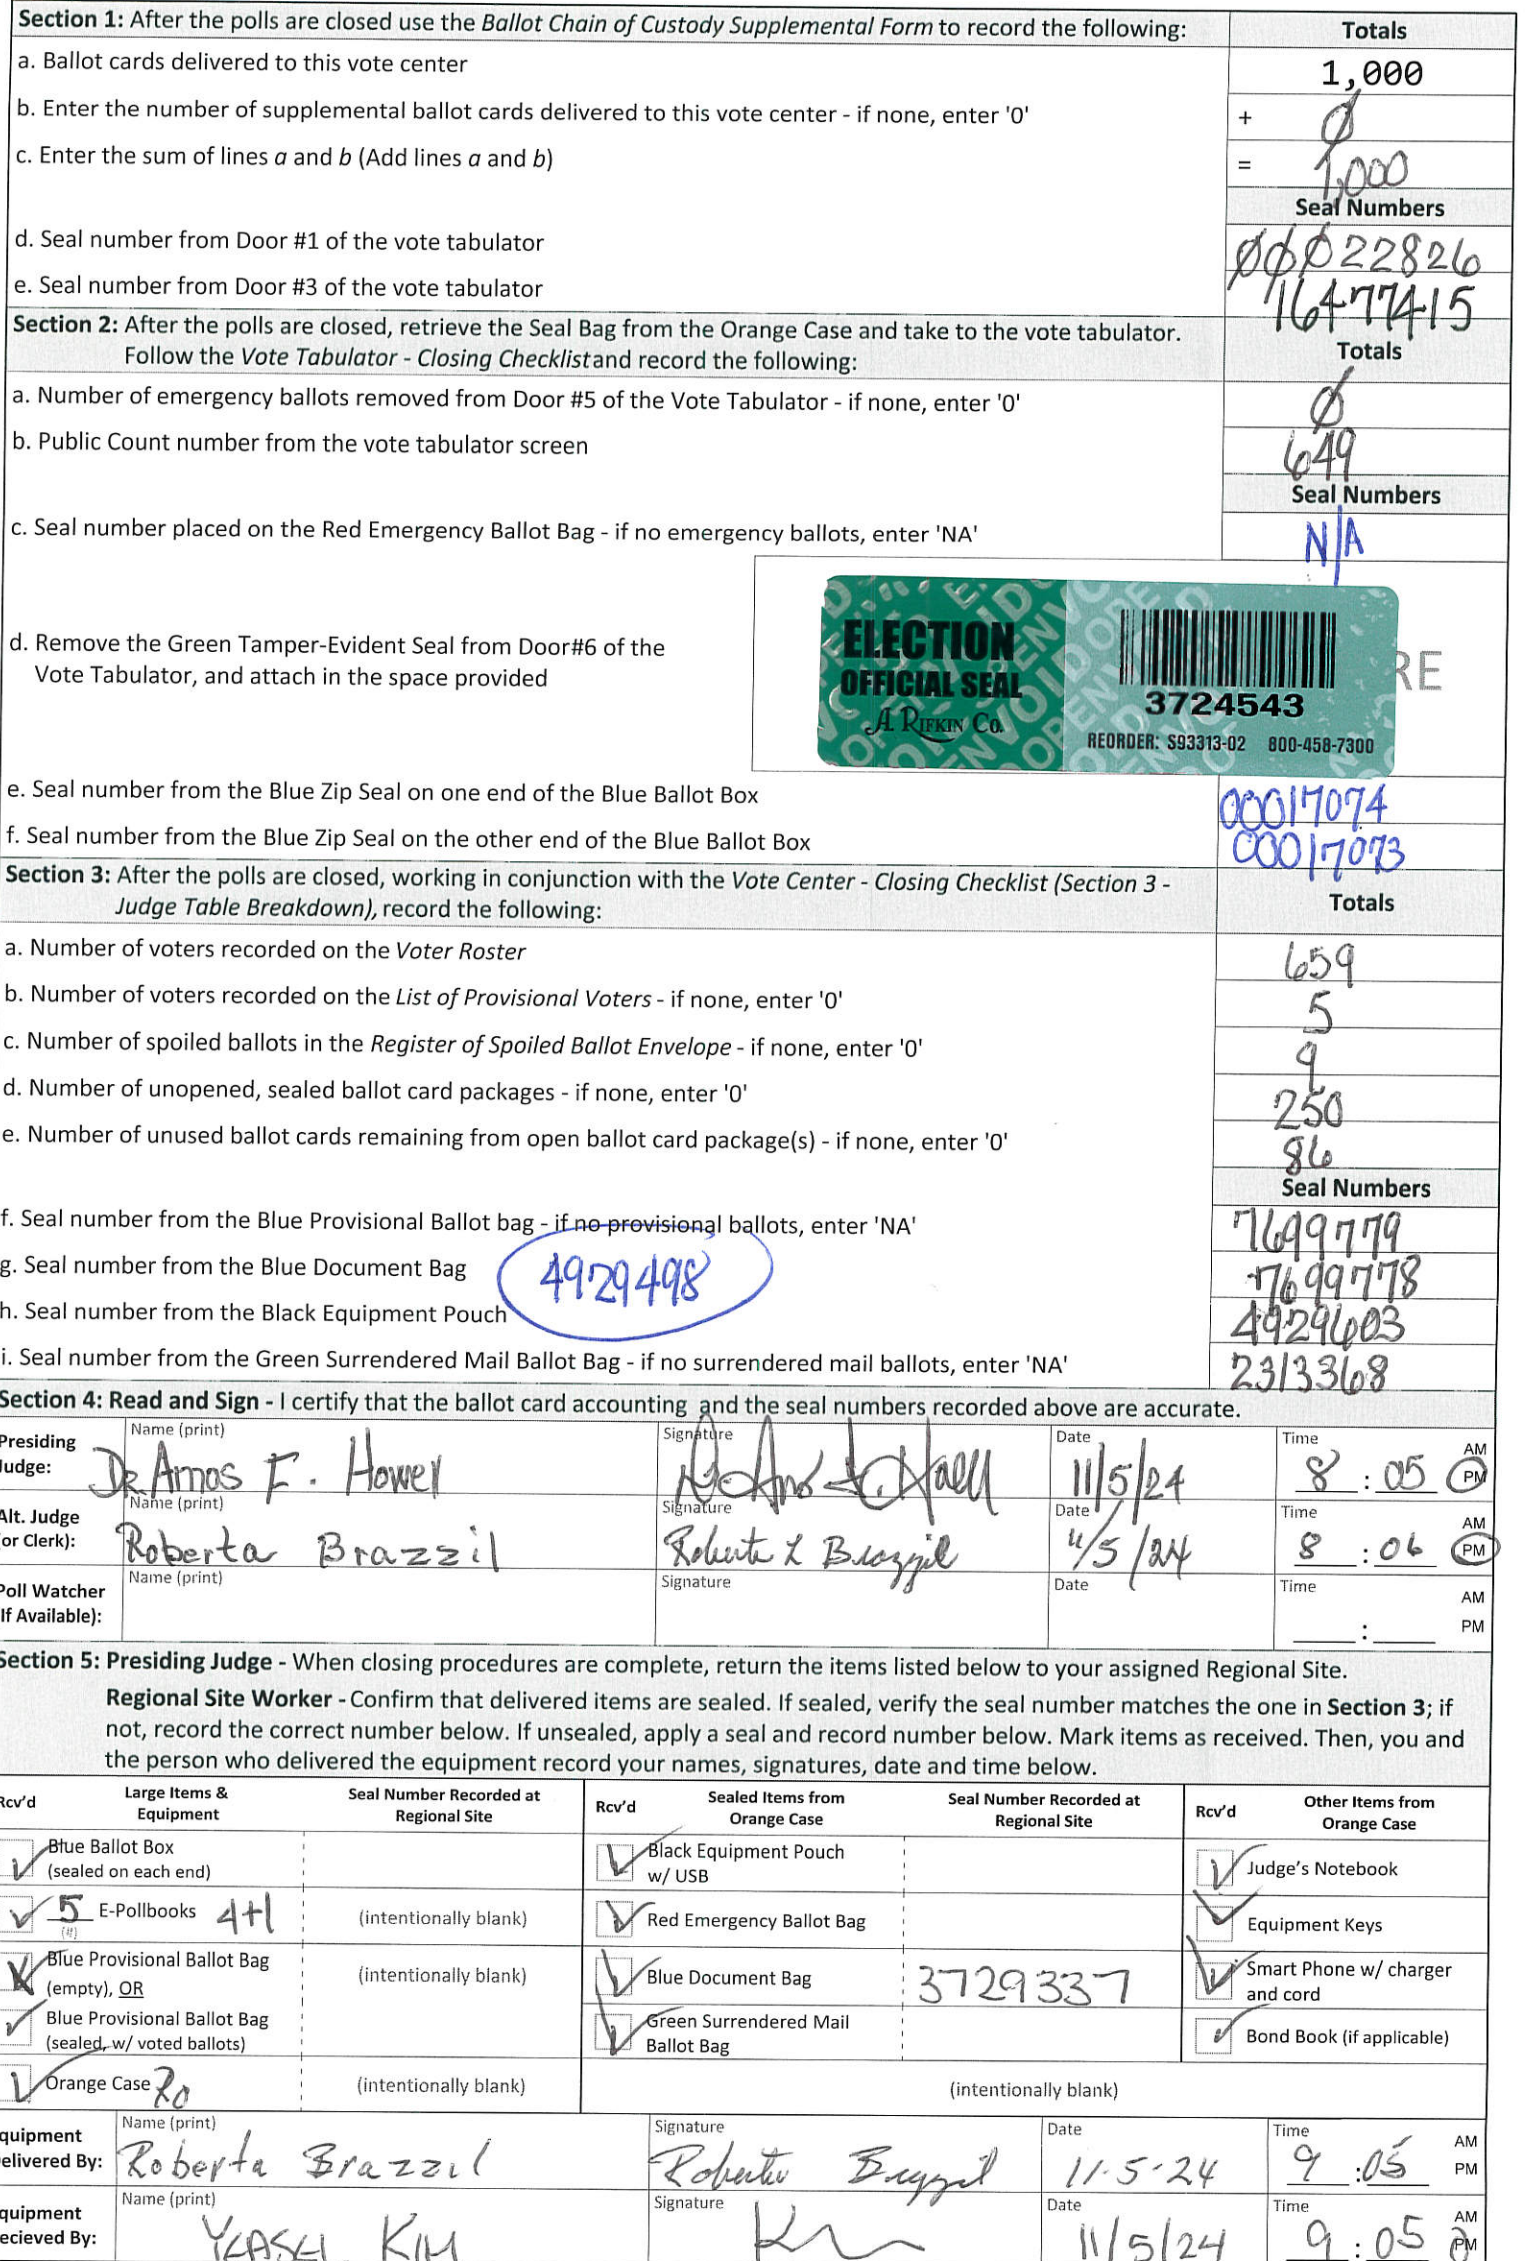 Section 1: After the polls are closed use the Ballot Chain of Custody Supplemental Form to record the following: Totals
a. Ballot cards delivered to this vote center 1,000
b. Enter the number of supplemental ballot cards delivered to this vote center - if none, enter '0' + Ø
c. Enter the sum of lines a and b (Add lines a and b) = 1,000
Seal Numbers
d. Seal number from Door #1 of the vote tabulator ØØØ22826
e. Seal number from Door #3 of the vote tabulator 16477415
Section 2: After the polls are closed, retrieve the Seal Bag from the Orange Case and take to the vote tabulator.
Follow the Vote Tabulator - Closing Checklist and record the following: Totals
a. Number of emergency ballots removed from Door #5 of the Vote Tabulator - if none, enter '0' Ø
b. Public Count number from the vote tabulator screen 649
Seal Numbers
c. Seal number placed on the Red Emergency Ballot Bag - if no emergency ballots, enter 'NA' N/A
d. Remove the Green Tamper-Evident Seal from Door#6 of the
Vote Tabulator, and attach in the space provided
ELECTION
OFFICIAL SEAL
A RIFKIN CO.
3724543
REORDER: S93313-02 800-458-7300
RE
e. Seal number from the Blue Zip Seal on one end of the Blue Ballot Box 00017074
f. Seal number from the Blue Zip Seal on the other end of the Blue Ballot Box 00017073
Section 3: After the polls are closed, working in conjunction with the Vote Center - Closing Checklist (Section 3 -
Judge Table Breakdown), record the following: Totals
a. Number of voters recorded on the Voter Roster 659
b. Number of voters recorded on the List of Provisional Voters - if none, enter '0' 5
c. Number of spoiled ballots in the Register of Spoiled Ballot Envelope - if none, enter '0' 9
d. Number of unopened, sealed ballot card packages - if none, enter '0' 250
e. Number of unused ballot cards remaining from open ballot card package(s) - if none, enter '0' 86
Seal Numbers
f. Seal number from the Blue Provisional Ballot bag - if no provisional ballots, enter 'NA' 7699779
g. Seal number from the Blue Document Bag 4929498 7699778
h. Seal number from the Black Equipment Pouch 4929603
i. Seal number from the Green Surrendered Mail Ballot Bag - if no surrendered mail ballots, enter 'NA' 2313368
Section 4: Read and Sign - I certify that the ballot card accounting and the seal numbers recorded above are accurate.
Presiding Name (print) Signature Date Time AM
Judge: Dr. Amos F. Howel 11/5/24 8:05 PM
Alt. Judge Name (print) Signature Date Time AM
or Clerk): Roberta Brazzil Roberta L Brazzil 11/5/24 8:06 PM
Poll Watcher Name (print) Signature Date Time AM
If Available): : PM
Section 5: Presiding Judge - When closing procedures are complete, return the items listed below to your assigned Regional Site.
Regional Site Worker - Confirm that delivered items are sealed. If sealed, verify the seal number matches the one in Section 3; if
not, record the correct number below. If unsealed, apply a seal and record number below. Mark items as received. Then, you and
the person who delivered the equipment record your names, signatures, date and time below.
Rcv'd Large Items & Equipment Seal Number Recorded at Regional Site Rcv'd Sealed Items from Orange Case Seal Number Recorded at Regional Site Rcv'd Other Items from Orange Case
Blue Ballot Box (sealed on each end) Black Equipment Pouch w/ USB Judge's Notebook
5 (#) E-Pollbooks 4+1 (intentionally blank) Red Emergency Ballot Bag Equipment Keys
Blue Provisional Ballot Bag (empty), OR (intentionally blank) Blue Document Bag 3729337 Smart Phone w/ charger and cord
Blue Provisional Ballot Bag (sealed, w/ voted ballots) Green Surrendered Mail Ballot Bag Bond Book (if applicable)
Orange Case (intentionally blank) (intentionally blank)
quipment Name (print) Signature Date Time AM
elivered By: Roberta Brazzil Roberta Brazzil 11-5-24 9:05 PM
quipment Name (print) Signature Date Time AM
ecieved By: Kim 11/5/24 9:05 PM